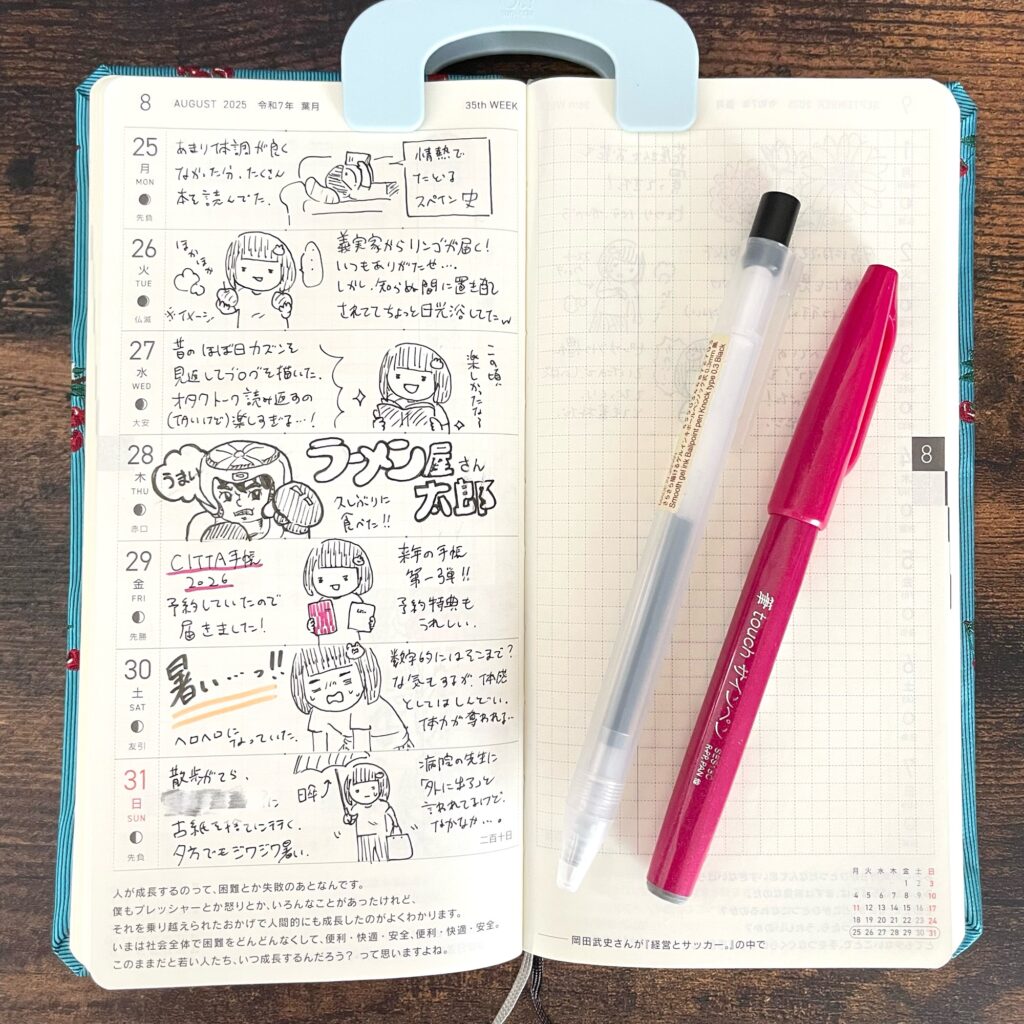 8 AUGUST 2025 令和7年 葉月 35th WEEK
25
月
MON
先負
あまり体調が良く
なかった分、たくさん
本を読んでた。
情熱で
たどる
スペイン史
26
火
TUE
仏滅
ほかほか
※イメージ
義実家からリンゴが届く!
いつもありがたせ…。
しかし、知らぬ間に置き配
されててちょっと日光浴してたw
27
水
WED
大安
昔のほぼ日カズンを
見返してブログを描いた。
オタクトーク読み返すの
(イタいけど)楽しすぎる…!
この頃…
楽しかったな〜
28
木
THU
赤口
うまい
ラーメン屋さん
太郎
久しぶりに
食べた!!
29
金
FRI
先勝
CITTA手帳
2026
予約していたので
届きました!
来年の手帳
第一弾!!
予約特典も
うれしい。
30
土
SAT
友引
暑い…っ!!
ヘロヘロになっていた。
数字的にはそこまで?
な気もするが、体感
としてはしんどい。
体力が奪われる…
31
日
SUN
先負
散歩がてら、
に
古紙を捨てに行く。
夕方でもジワジワ暑い。
日傘
病院の先生に
「外に出ろ」と
言われてるけど、
なかなか…。
二百十日
人が成長するのって、困難とか失敗のあとなんです。
僕もプレッシャーとか怒りとか、いろんなことがあったけれど、
それを乗り越えられたおかげで人間的にも成長したのがよくわかります。
いまは社会全体で困難をどんどんなくして、便利・快適・安全、便利・快適・安全。
このままだと若い人たち、いつ成長するんだろう? って思いますよね。
8
さらさら描けるゲルインキボールペンノック式 0.3mm 黒
Smooth gel ink Ballpoint pen Knock type 0.3 Black
筆touch サインペン
月 火 水 木 金 土 日
1 2 3
4 5 6 7 8 9 10
11 12 13 14 15 16 17
18 19 20 21 22 23 24
25 26 27 28 29 30 31
岡田武史さんが『経営とサッカー。』の中で